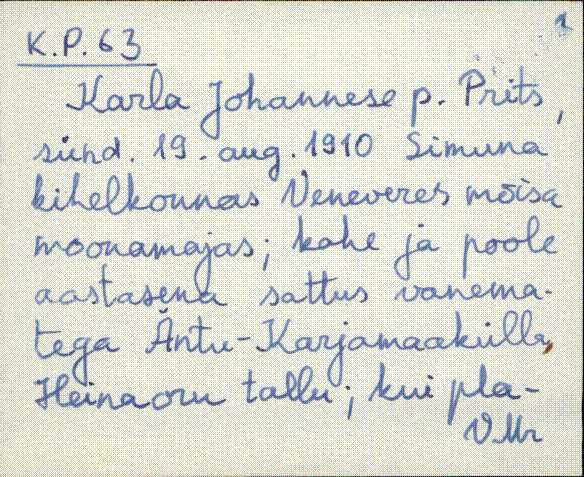 1
K.P. 63
Karla Johannese p. Prits,
sünd. 19. aug. 1910 Simuna
kihelkonnas Veneveres mõisa
moonamajas; kahe ja poole
aastasena sattus vanema-
tega Äntu-Karjamaakülla,
Heinaoru tallu; kui pla-
VMr